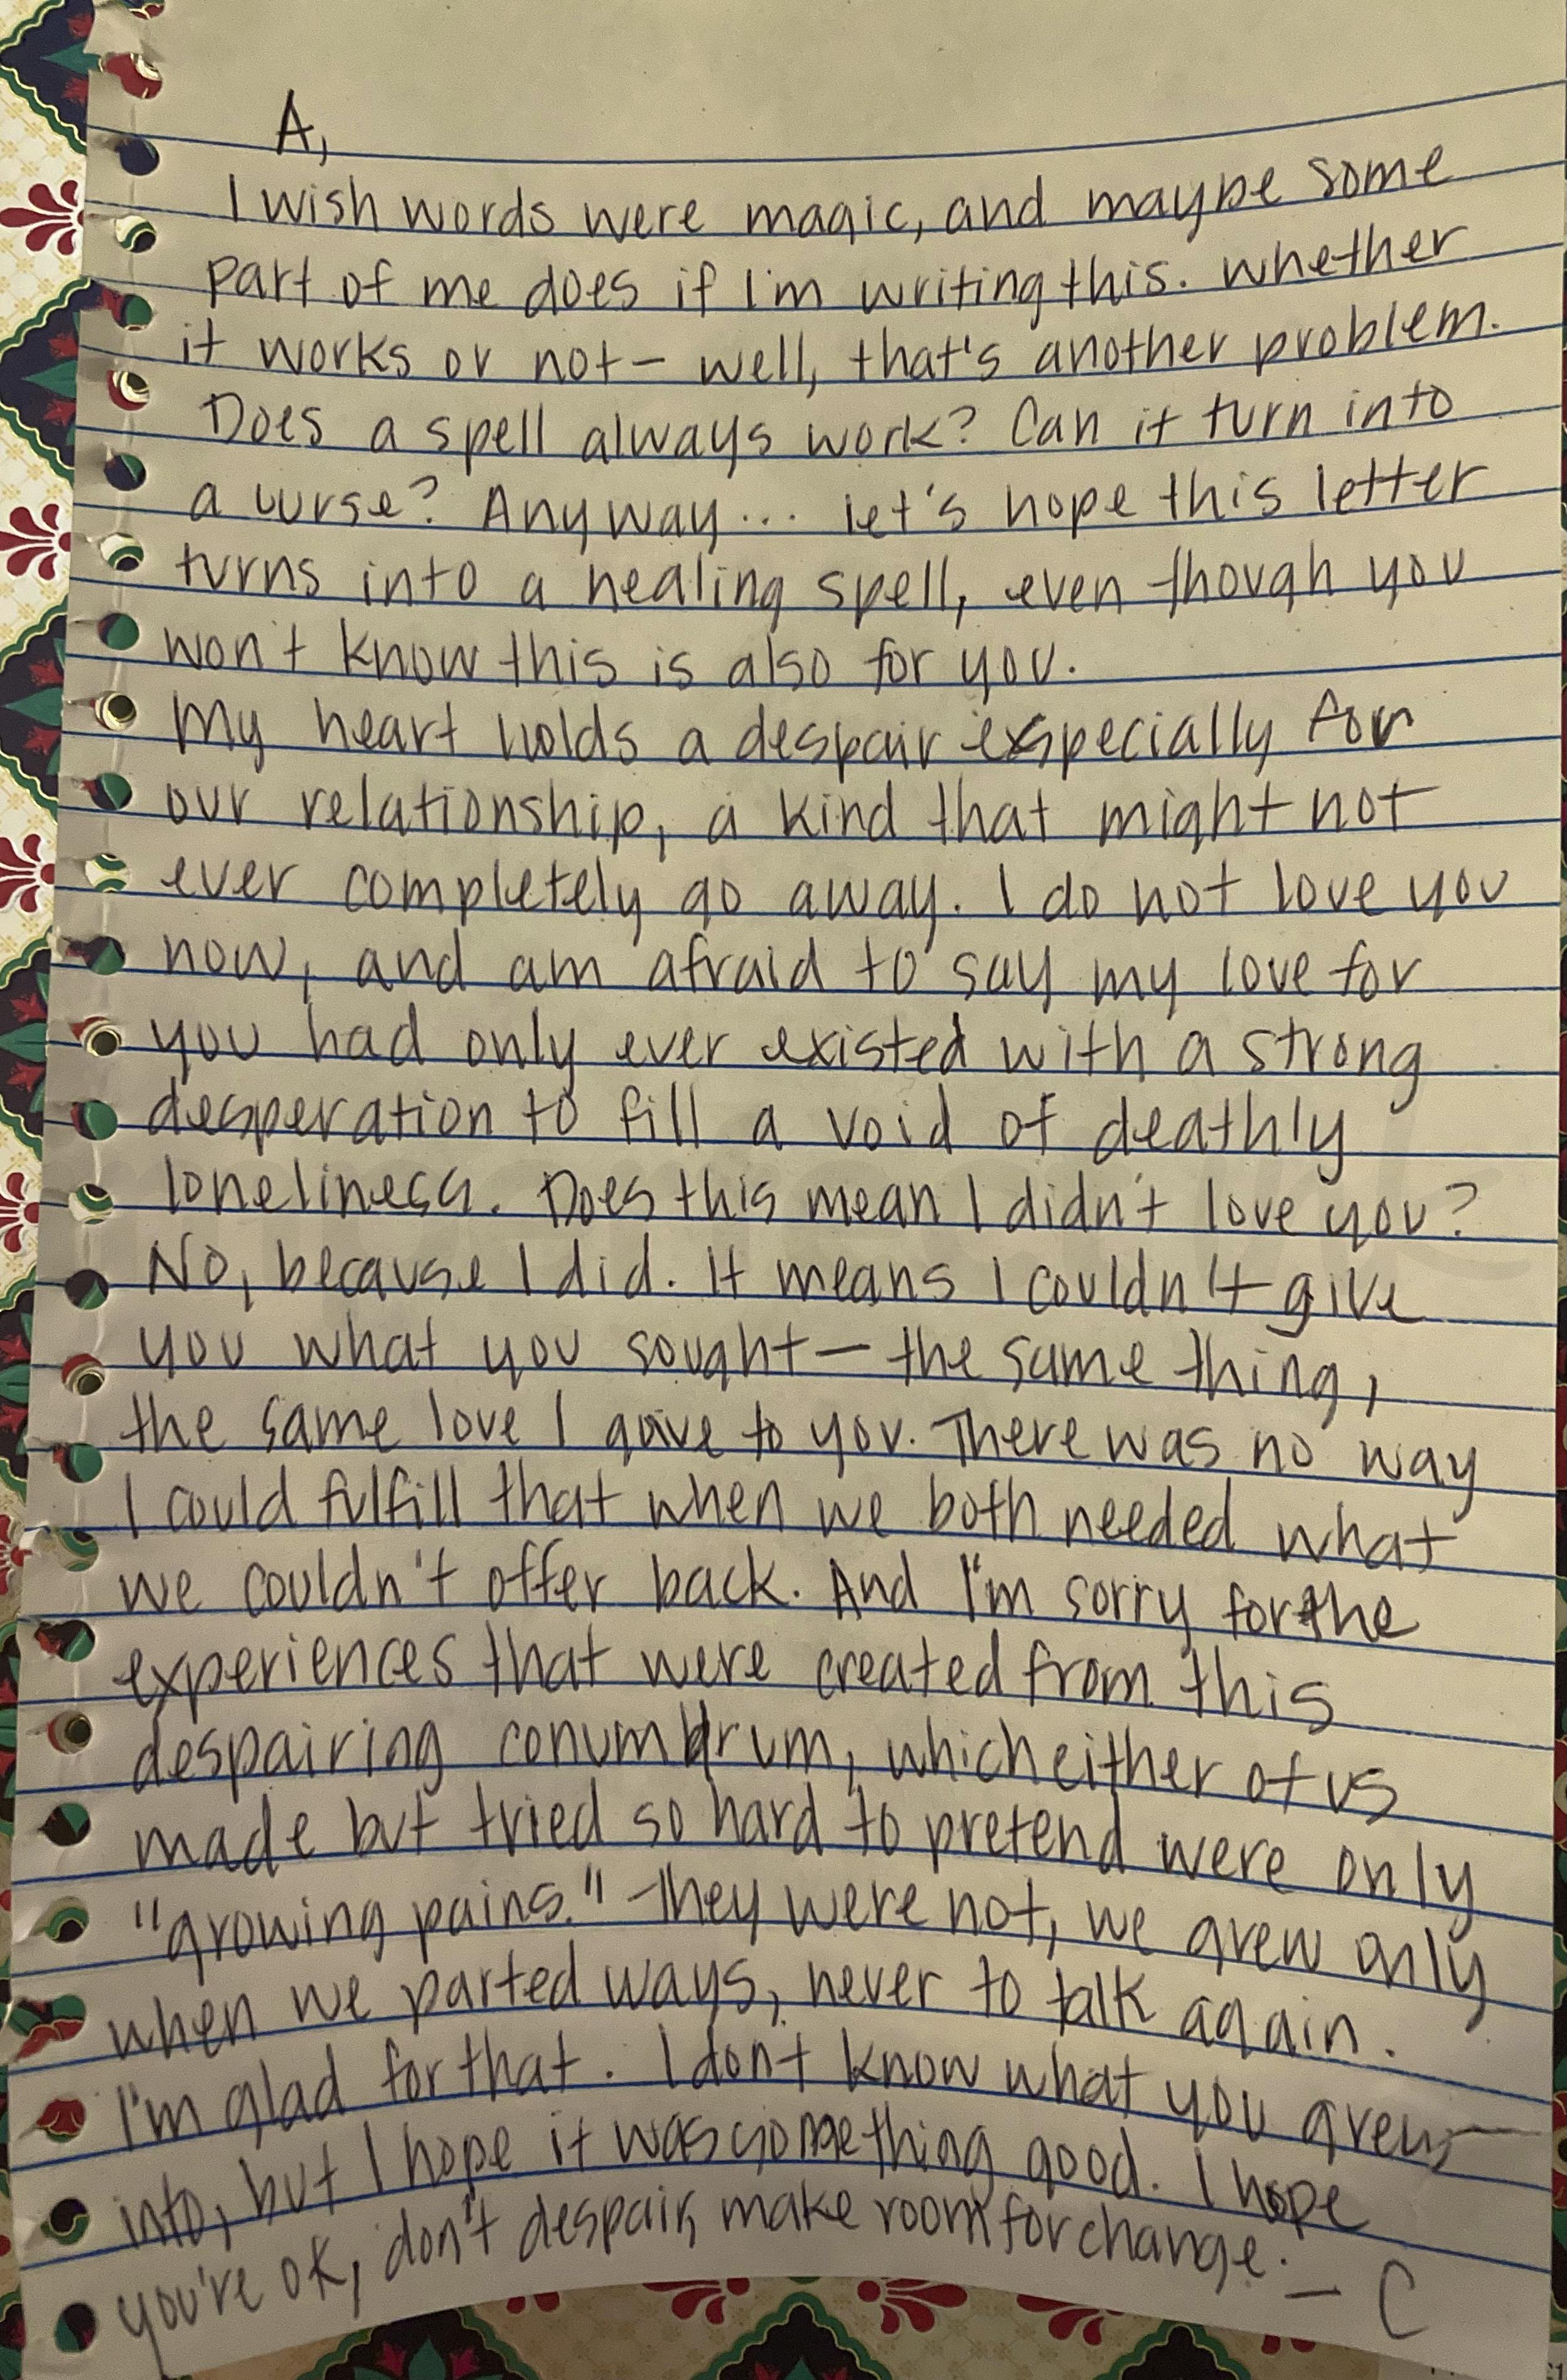 A,
I wish words were magic, and maybe some
part of me does if I'm writing this. Whether
it works or not— well, that's another problem.
Does a spell always work? Can it turn into
a curse? Anyway... let's hope this letter
turns into a healing spell, even though you
won't know this is also for you.
My heart holds a despair exspecially for
our relationship, a kind that might not
ever completely go away. I do not love you
now, and am afraid to say my love for
you had only ever existed with a strong
desperation to fill a void of deathly
loneliness. Does this mean I didn't love you?
No, because I did. It means I couldn't give
you what you sought— the same thing,
the same love I gave to you. There was no way
I could fulfill that when we both needed what
we couldn't offer back. And I'm sorry for the
experiences that were created from this
despairing conumdrum, which either of us
made but tried so hard to pretend were only
"growing pains." They were not, we grew only
when we parted ways, never to talk again.
I'm glad for that. I don't know what you grew
into, but I hope it was something good. I hope
you're ok, don't despair, make room for change.
— C